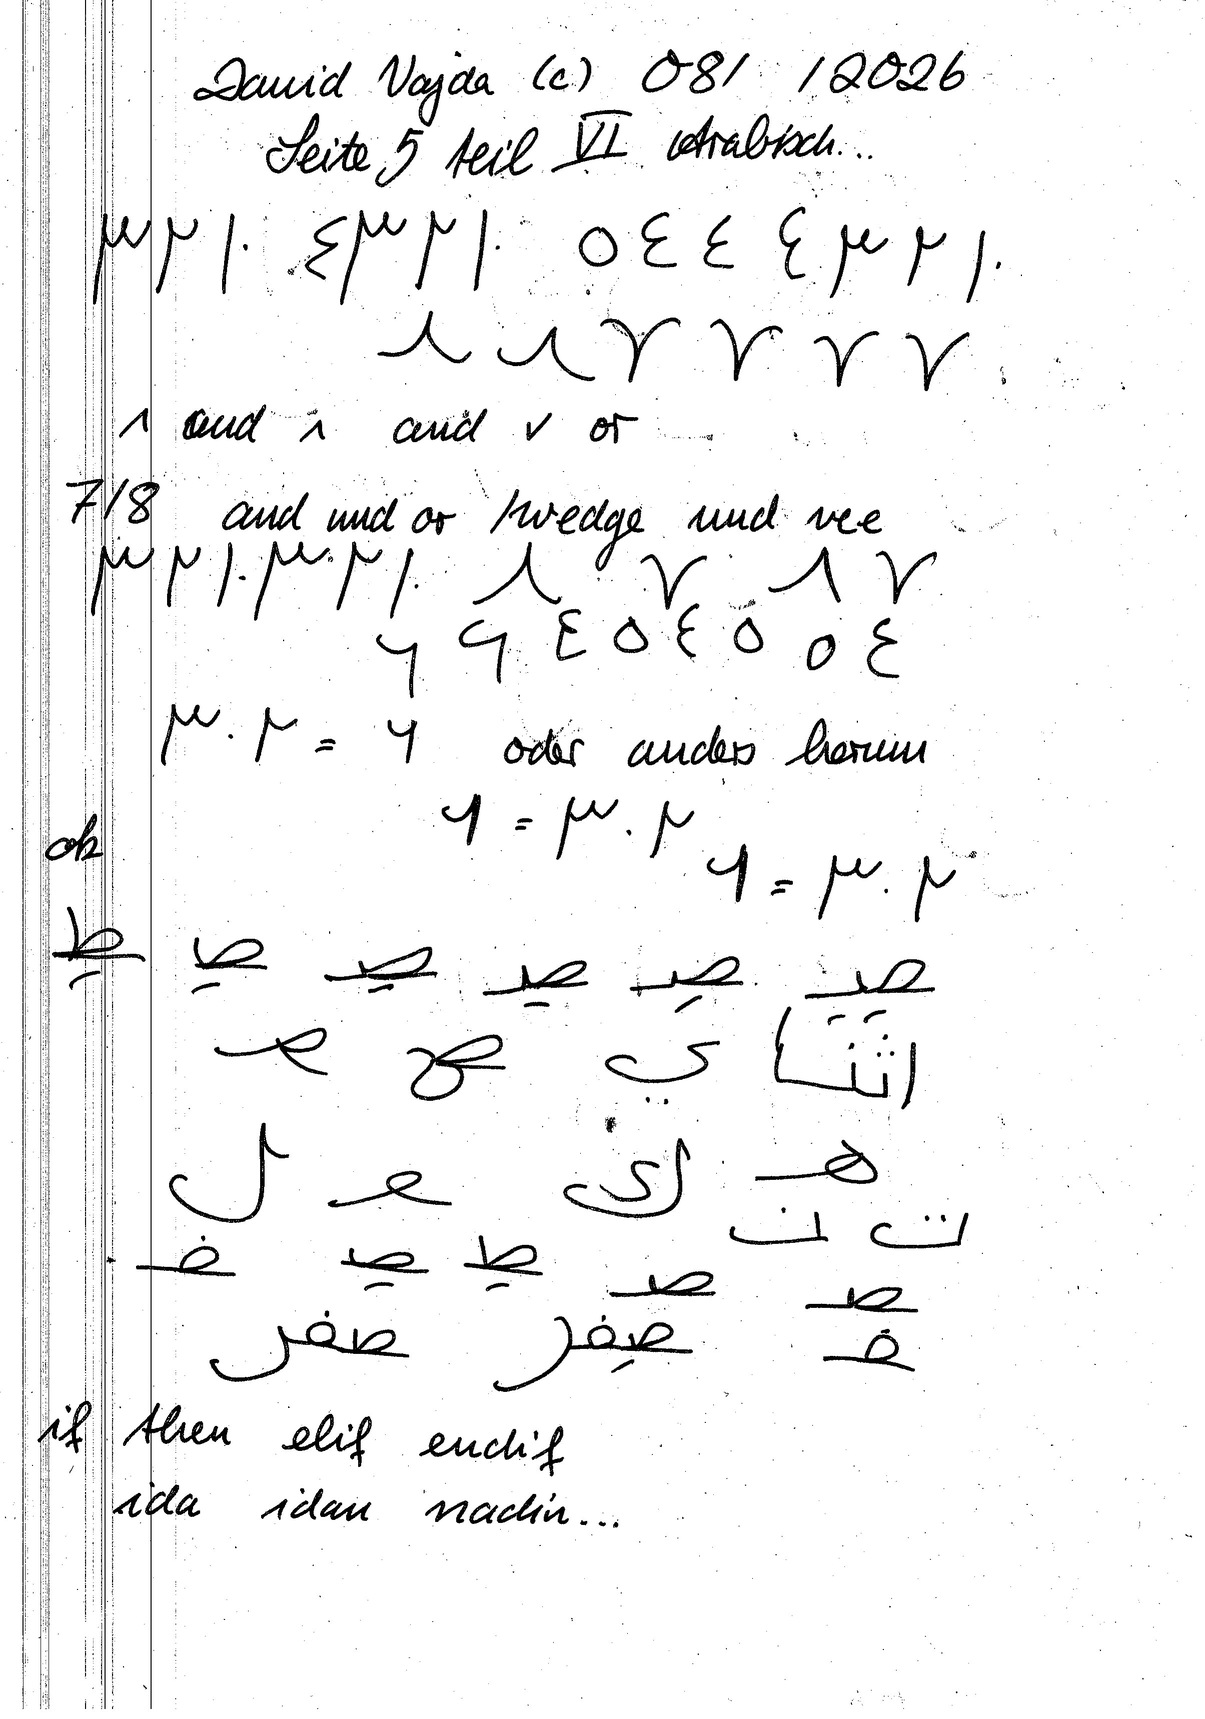 David Vajda (c) 08/ /2026
Seite 5 teil VI Arabisch...
٣٢١٠ ٤٣٢١٠ ٥٤٤٤٣٢١٠
٨٨٧٧٧٧
∧ and ∧ and ∨ or
7/8 and und or / wedge und vee
٣٢١٠٣٢١٠ ٨ ٧ ٨ ٧
٦ ٦ ٤ ٥ ٤ ٥ ٥ ٤
٣ . ٢ = ٦ oder anders herum
٦ = ٣ . ٢
ok
٦ = ٣ . ٢
صَـ صِـ صِـ صِـ صِـ طِـ
ي
هـ ك ل
ت ن
صـ طِـ صِـ فـ
صـ
صِفر صفر
فـ
if then elif endif
ida idan nadin...